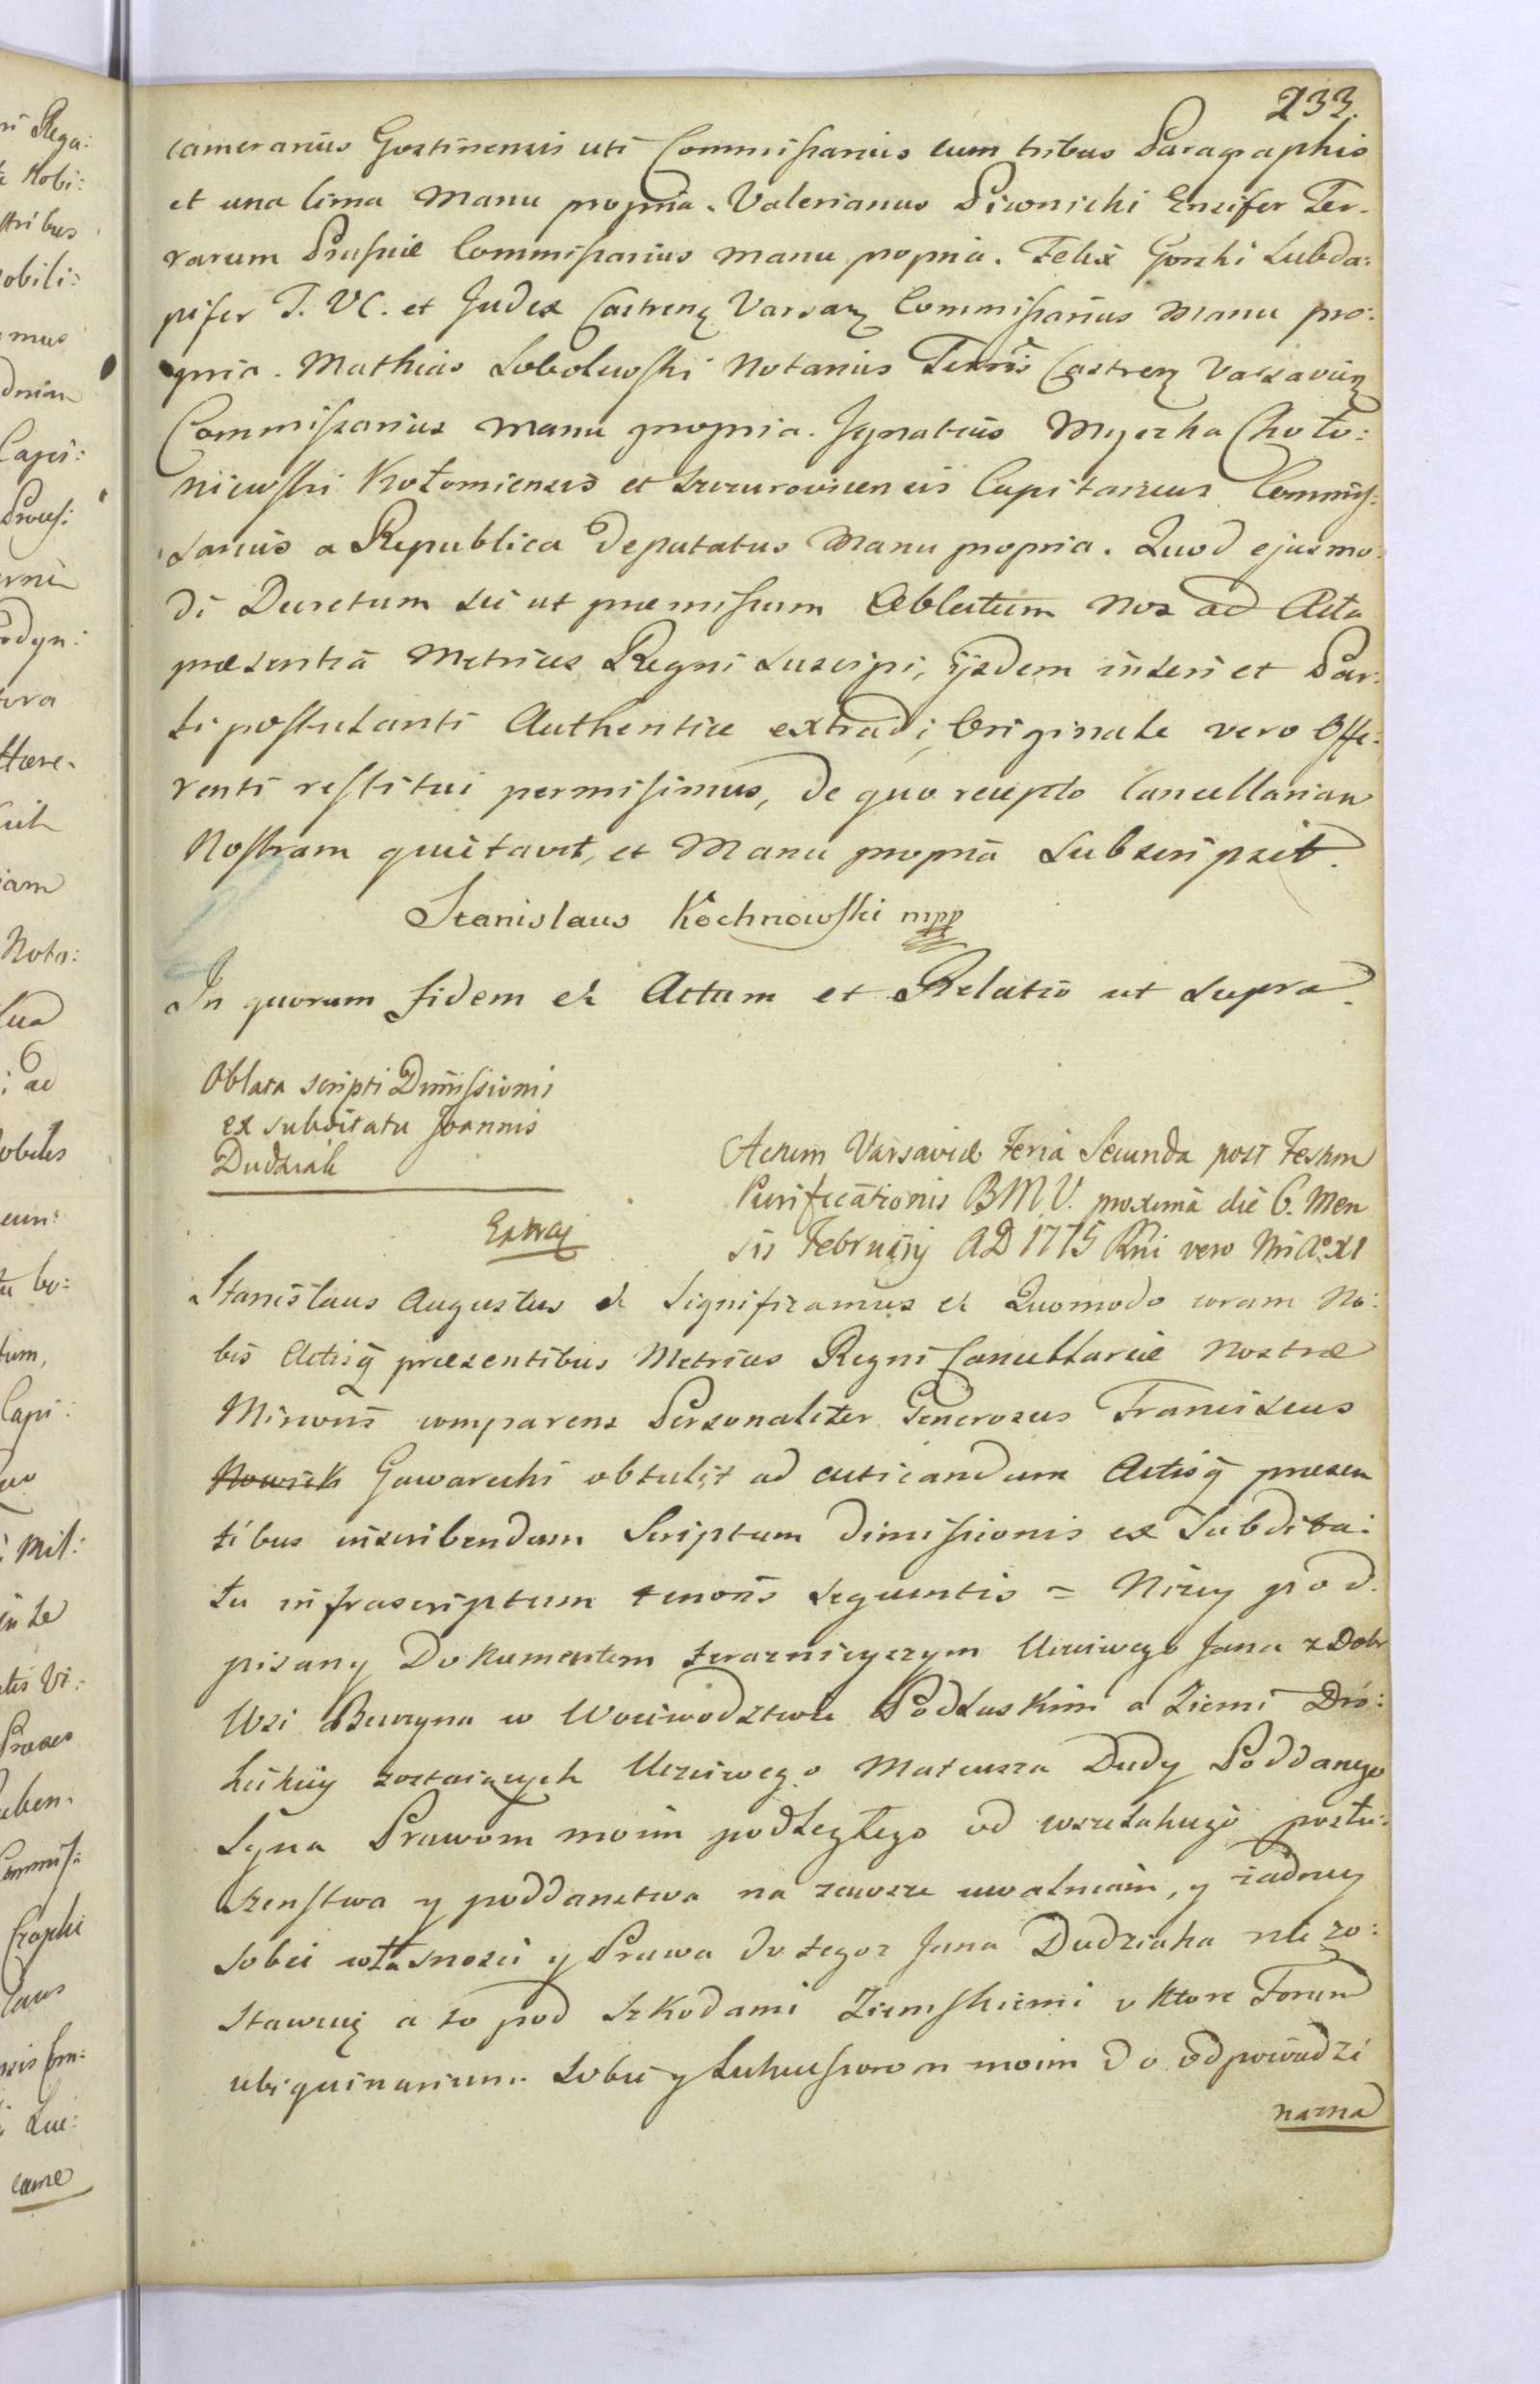 233.
camerarius Gostinensis uti Commissarius cum tribus Paragraphis
et una lima Manu propria. Valerianus Piwnicki Ensifer Ter-
rarum Prussiæ Commissarius manu propria. Felix Gorski Subda:
pifer T. VC. et Judex Castren Varsav Commissarius Manu pro:
pria. Mathias Sobolewski Notarius Terris Castren Varsavien
Commissarius manu propria. Ignatius Myszka Choło:
niewski Kołomiensis et Szczurovicensis Capitaneus Commis:
sarius a Republica Deputatus Manu propria. Quod ejusmo:
di Decretum sic ut præmissum Oblatum Nos ad Acta
præsentia Metrices Regni suscipi, ijsdem inseri et Par:
ti postulanti Authentice extradi, Originale vero Offe:
renti restitui permisimus, de quo recepto Cancellariam
Nostram quietavit, et Manu propria subscripsit.
Stanislaus Kochnowski mpp
In quorum fidem et Actum et Relatio ut supra.
Oblata scripti Dimissionis
ex subditatu Joannis
Dudziak
Actum Varsaviæ Feria Secunda post Festum
Purificationis BMV. proxima die 6. Men
sis Februarij AD 1775 Rni vero Nri Aº XI
Extraj
Stanislaus Augustus et Significamus et Quomodo coram No:
bis Actisq præsentibus Metrices Regni Cancellariæ Nostræ
Minoris comparens Personaliter Generosus Franciscus
Gawarecki obtulit ad acticandum Actisq præsen
tibus inscribendum Scriptum dimissionis ex Subdita:
tu infrascriptum tenoris sequentis = Niżey pod
pisany Dokumentem teraznieyszym Uczciwego Jana z Dobr
Wsi Buczyna w Woiewodztwie Podlaskim a Ziemi Dro:
hickiey zostaiących Uczciwego Mateusza Dudy Poddanego
Syna Prawom moim podległego od wszelakiego posłu:
szenstwa y poddanstwa na zawsze uwalniam, y żadney
sobie własnosci y Prawa do tegoz Jana Dudziaka nie zo:
stawuię a to pod szkodami Ziemskiemi o ktore Forum
ubiquinarium sobie y Sukcessorom moim do odpowiedzi
nazna